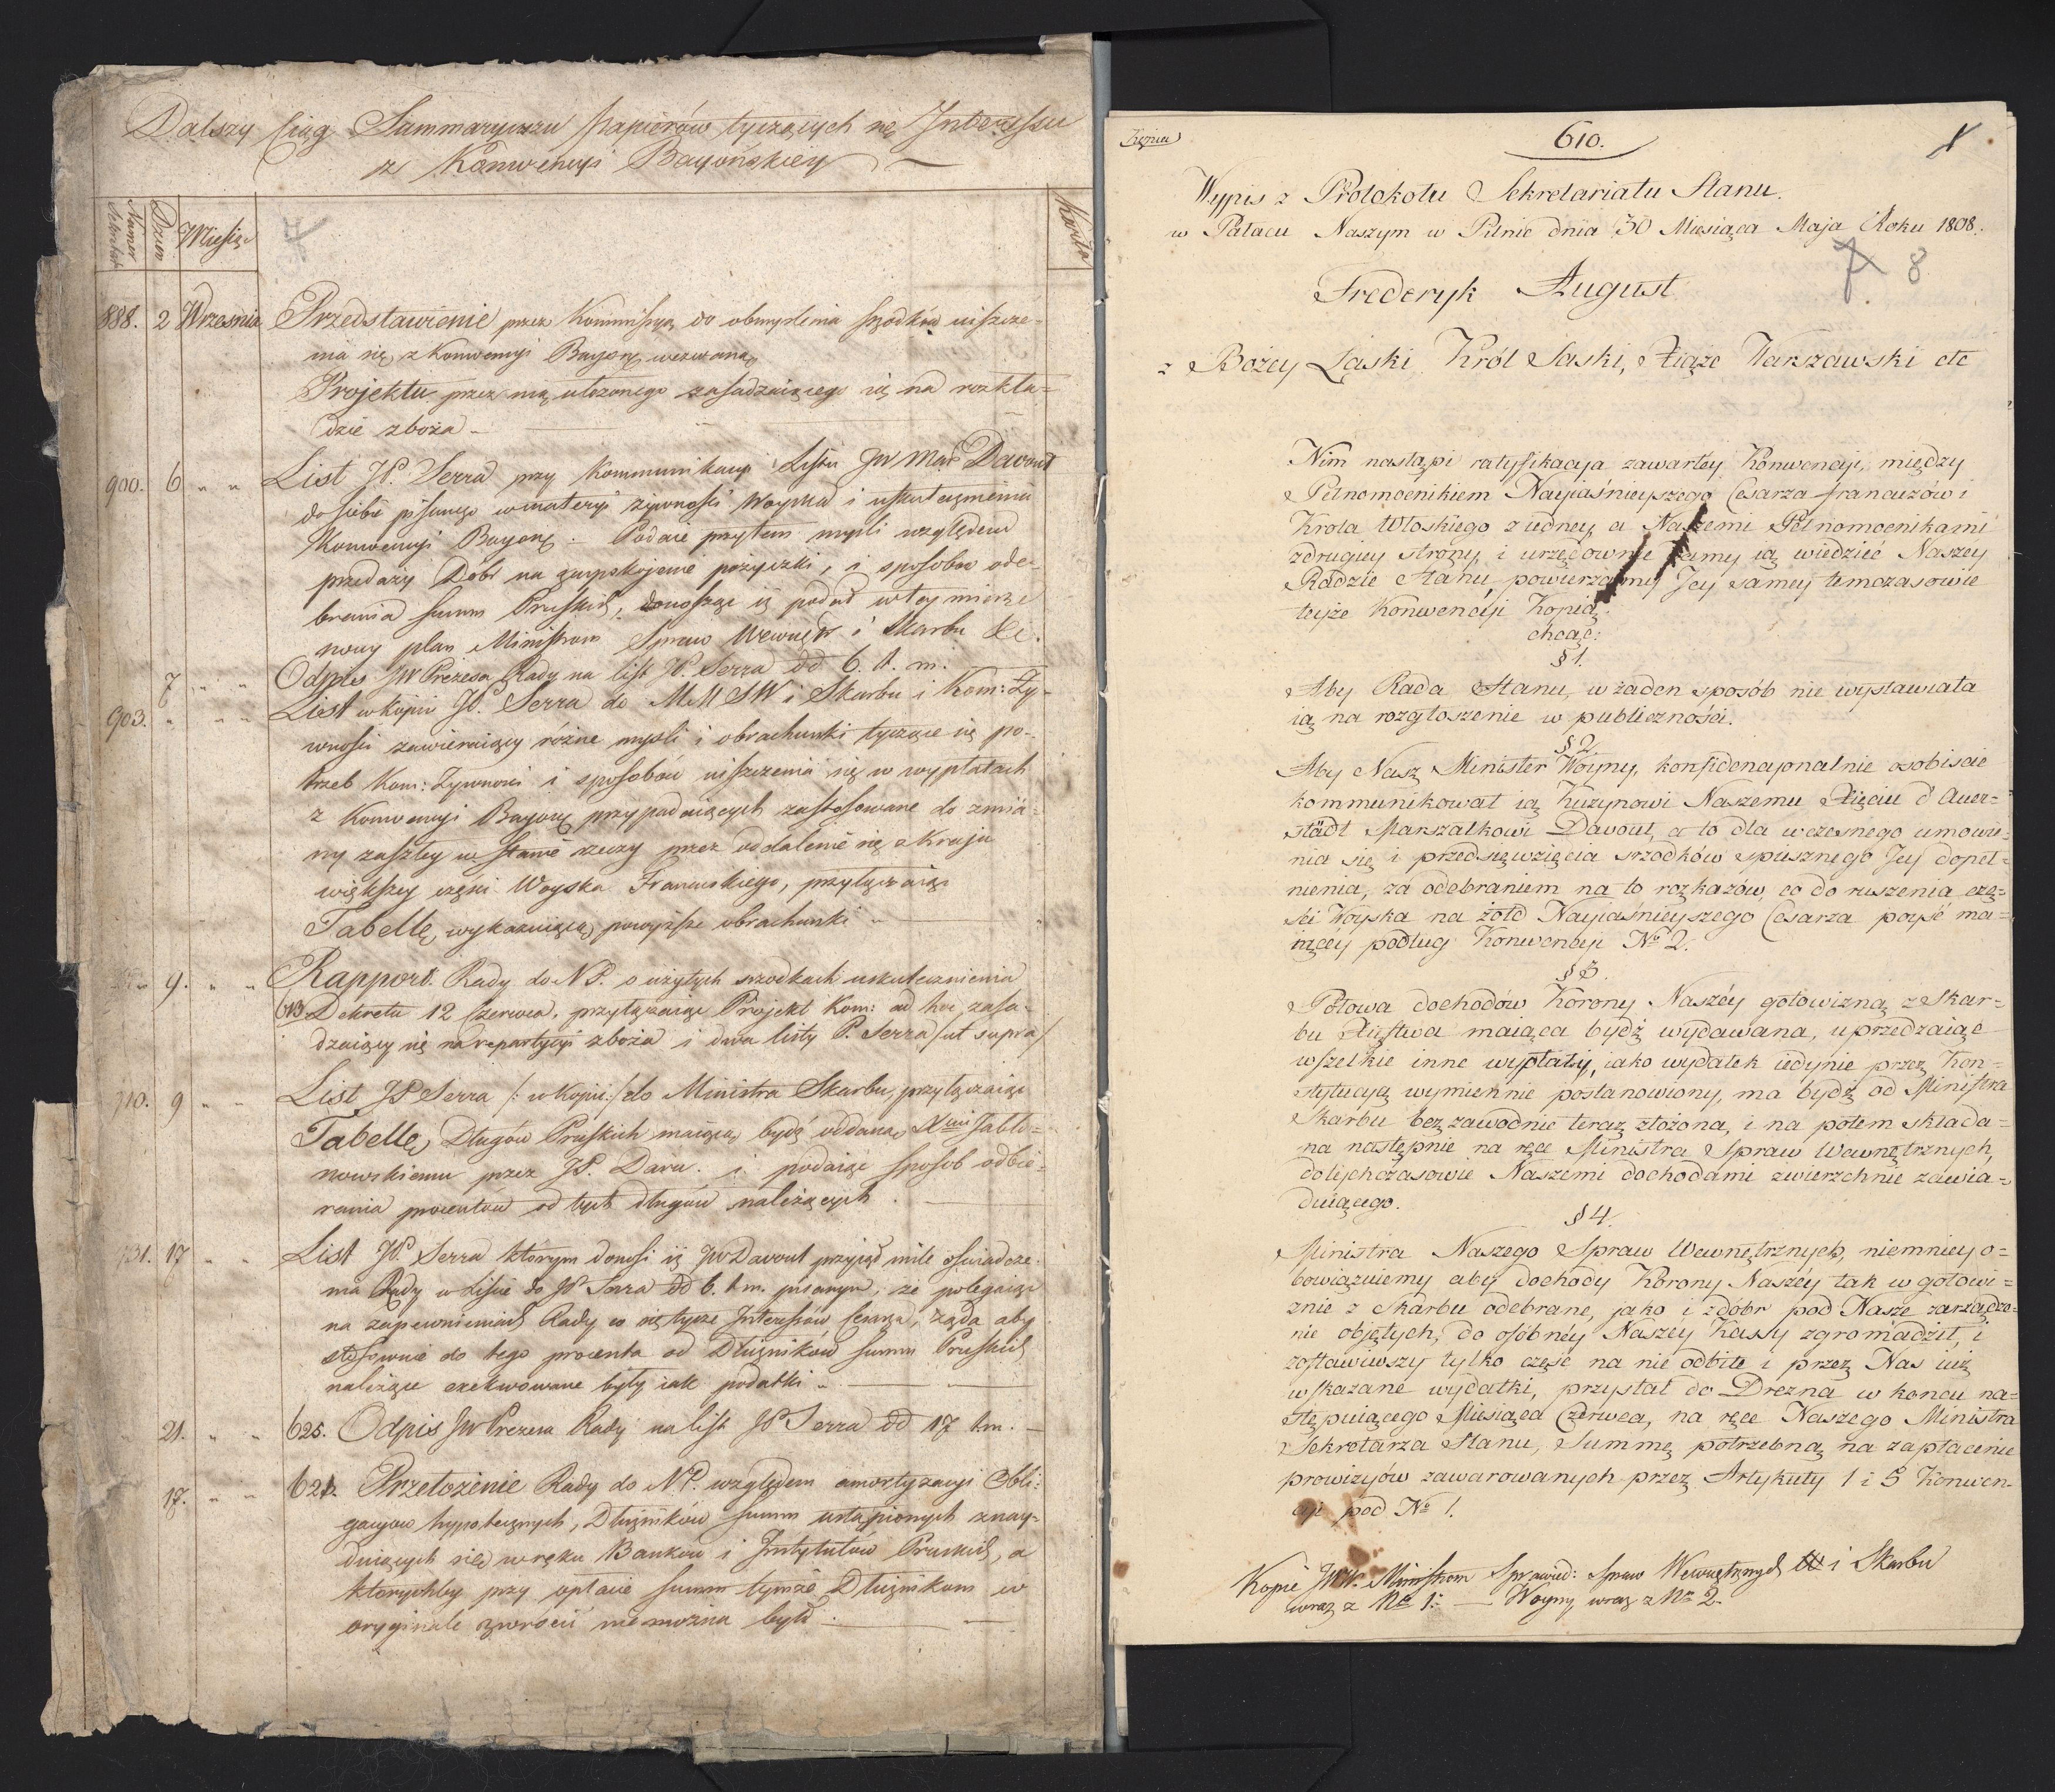 Dalszy Ciąg Summaryuszu papierów tyczących się Interessu
z Konwencyi Bayońskiey
Numer
Dzień
Miesiąc
Karta
888. 2 Wrzesnia Przedstawienie przez Kommissyą do obmyslenia szrodków uiszcze-
nia się z Konwencyi Bayoń: wezwaną
Projektu przez nią ułozonego zasadzaiącego się na rozkła-
dzie zboża
900. 6 " " List JP. Serra przy kommunikacyi Listu JW Mar Davout
do siebie pisanego w materyi żywności Woyska i uskutecznienia
Konwencyi Bayoń. Podaie przytem mysli względem
przedaży Dóbr na zaspokojenie pożyczki, i sposobów ode-
brania Summ Pruskich, donosząc iż podał w tey mierze
nowy plan Ministrom Spraw Wewnętr i Skarbu &c.
7 " " Odpis JW Prezesa Rady na list JP. Serra dd 6. t. m.
903. " " " List w kopii JP. Serra do MM SW i Skarbu i Kom: Ży-
wności zawieraiący różne mysli i obrachunki tyczące się po-
trzeb Kom: Zywnosci i sposobów uiszczenia się w wypłatach
z Konwencyi Bayoń przypadaiących zastosowane do zmia-
ny zaszłey w stanie rzeczy przez oddalenie się z Kraju
większey części Woyska Francuskiego, przyłączaiąc
Tabellę, wykazuiącą powyższe obrachunki
9. " " Rapport Rady do NP. o użytych srzodkach uskutecznienia
613 Dekretu 12 Czerwca, przyłączaiąc Projekt Kom: ad hoc zasa-
dzaiący się na repartycyi zboża i dwa listy P. Serra /ut supra/
910. 9 " " List JP Serra /: w Kopii:/ do Ministra Skarbu, przyłączaiąc
Tabellę, Długów Pruskich maiącą bydź oddaną Xciu Jabło-
nowskiemu przez JP. Daru. i podaiąc sposob odbie-
rania procentów od tych długów należących
931. 17 " " List JP. Serra ktorym donosi iż JW Davout przyjął mile oświadcze-
nia Rady w Liscie do JP Serra dd 6. t.m. pisanym, że polegaiąc
na zapewnieniach Rady co się tycze Interessów Cesarza, żąda aby
stosownie do tego procenta od Dłużników summ Pruskich
należące exekwowane były iak podatki
21. " " 625. Odpis JW Prezesa Rady na list JP Serra dd 17 t.m.
17. " " 621. Przełożenie Rady do NP. względem amortyzacyi Obli-
gacyow hypotecznych, Dłużników summ ustąpionych znay-
duiących się w ręku Banków i Instytutów Pruskich, a
ktorychby przy opłacie summ tymże Dłużnikom w
oryginale zwrócić niemożna było
610.
Wypis z Protokołu Sekretariatu Stanu.
w Pałacu Naszym w Pilnic dnia 30 Miesiąca Maja Roku 1808.
7 8
Frederyk August
z Bożey Łaski Król Saski, Xiąże Warszawski etc
Nim nastąpi ratyfikacyja zawartéy Konwencyi, między
Pełnomocnikiem Nayiaśnieyszego Cesarza francuzów i
Krola Włoskiego z iedney, a Naszemi Pełnomocnikami
zdrugiey strony, i urzędownie damy ią wiedzieć Naszey
Radzie Stanu, powierzamy Jey samey tymczasowie
teyże Konwencyi Kopią.
chcąc:
§ 1.
Aby Rada Stanu, w żaden sposób nie wystawiała
ią na rozgłoszenie w publiczności.
§ 2.
Aby Nasz Minister Woyny, konfidencyonalnie osobiscie
kommunikował ią Kuzynowi Naszemu Xięciu d'Auer-
städt Marszałkowi Davout, a to dla wczesnego umowie-
nia się i przedsięwzięcia srzodków spiesznego Jey dopeł-
nienia, za odebraniem na to rozkazów, co do ruszenia czę-
ści Woyska na żołd Nayiaśnieyszego Cesarza poyść ma-
iącéy podług Konwencyi No 2.
§ 3.
Połowa dochodów Korony Naszéy gotowizną z Skar-
bu Xięstwa maiąca bydź wydawana, uprzedzaiąc
wszelkie inne wypłaty, iako wydatek iedynie przez Kon-
stytucyą wymiennie postanowiony, ma bydź od Ministra
Skarbu bez zawodnie teraz złożona, i na potem składa-
na następnie na ręce Ministra Spraw Wewnętrznych,
dotychczasowie Naszemi dochodami zwierzchnie zawia-
duiącego.
§ 4.
Ministra Naszego Spraw Wewnętrznych, niemniey o-
bowiązuiemy aby dochody Korony Naszéy tak w gotowi-
znie z Skarbu odebrane, jako i zdóbr pod Nasze zarządze-
nie objętych, do osóbnéy Naszéy Kassy zgromadził, i
zostawiwszy tylko częśc na nie odbite i przez Nas iuż
wskazane wydatki, przysłał do Drezna w koncu na-
stępuiącego Miesiąca Czerwca, na ręce Naszego Ministra
Sekretarza Stanu, Summę potrzebną na zapłacenie
prowizyów zawarowanych przez Artykuły 1 i 5 Konwen-
cyi pod No 1.
Kopie JWW. Ministrom Sprawied: Spraw Wewnętrznych i Skarbu
wraz z No 1: — Woyny wraz z No 2.